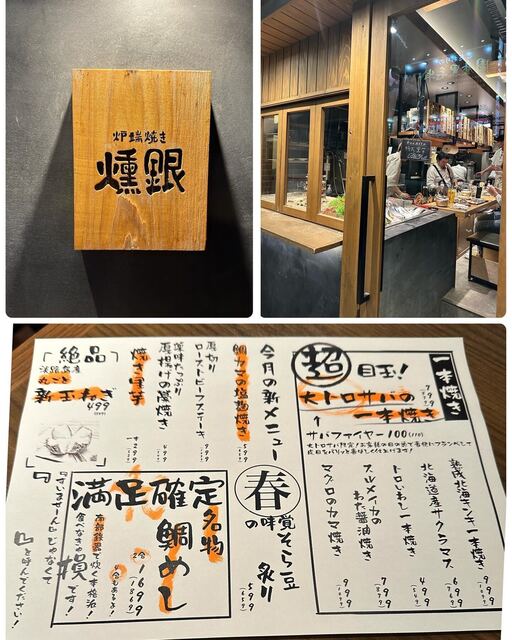 炉端焼き
燻銀
一本焼き
超目玉!
799
大トロサバの
一本焼き
サバファイヤー100(110)
熟成北海キンキ一本焼き
999
北海道産サクラマス
699
トロいわし一本焼き
499
スルメイカの
わた醤油焼き
799
マグロのカマ焼き
999
今月の新メニュー
鯛カマの塩麹焼き
599
厚切り
ローストビーフステーキ
薬味たっぷり
厚揚げの炭焼き
焼き里芋
一ヶ299
「絶品」
淡路島産
丸ごと
新玉ねぎ
499
春の味覚そら豆
炙り
599
満足確定
名物
鯛めし
2合
1699
(1869)
南部鉄器で炊く本格派!
食べなきゃ損です!
『すいませーん』じゃなくて
『 』と呼んでください!